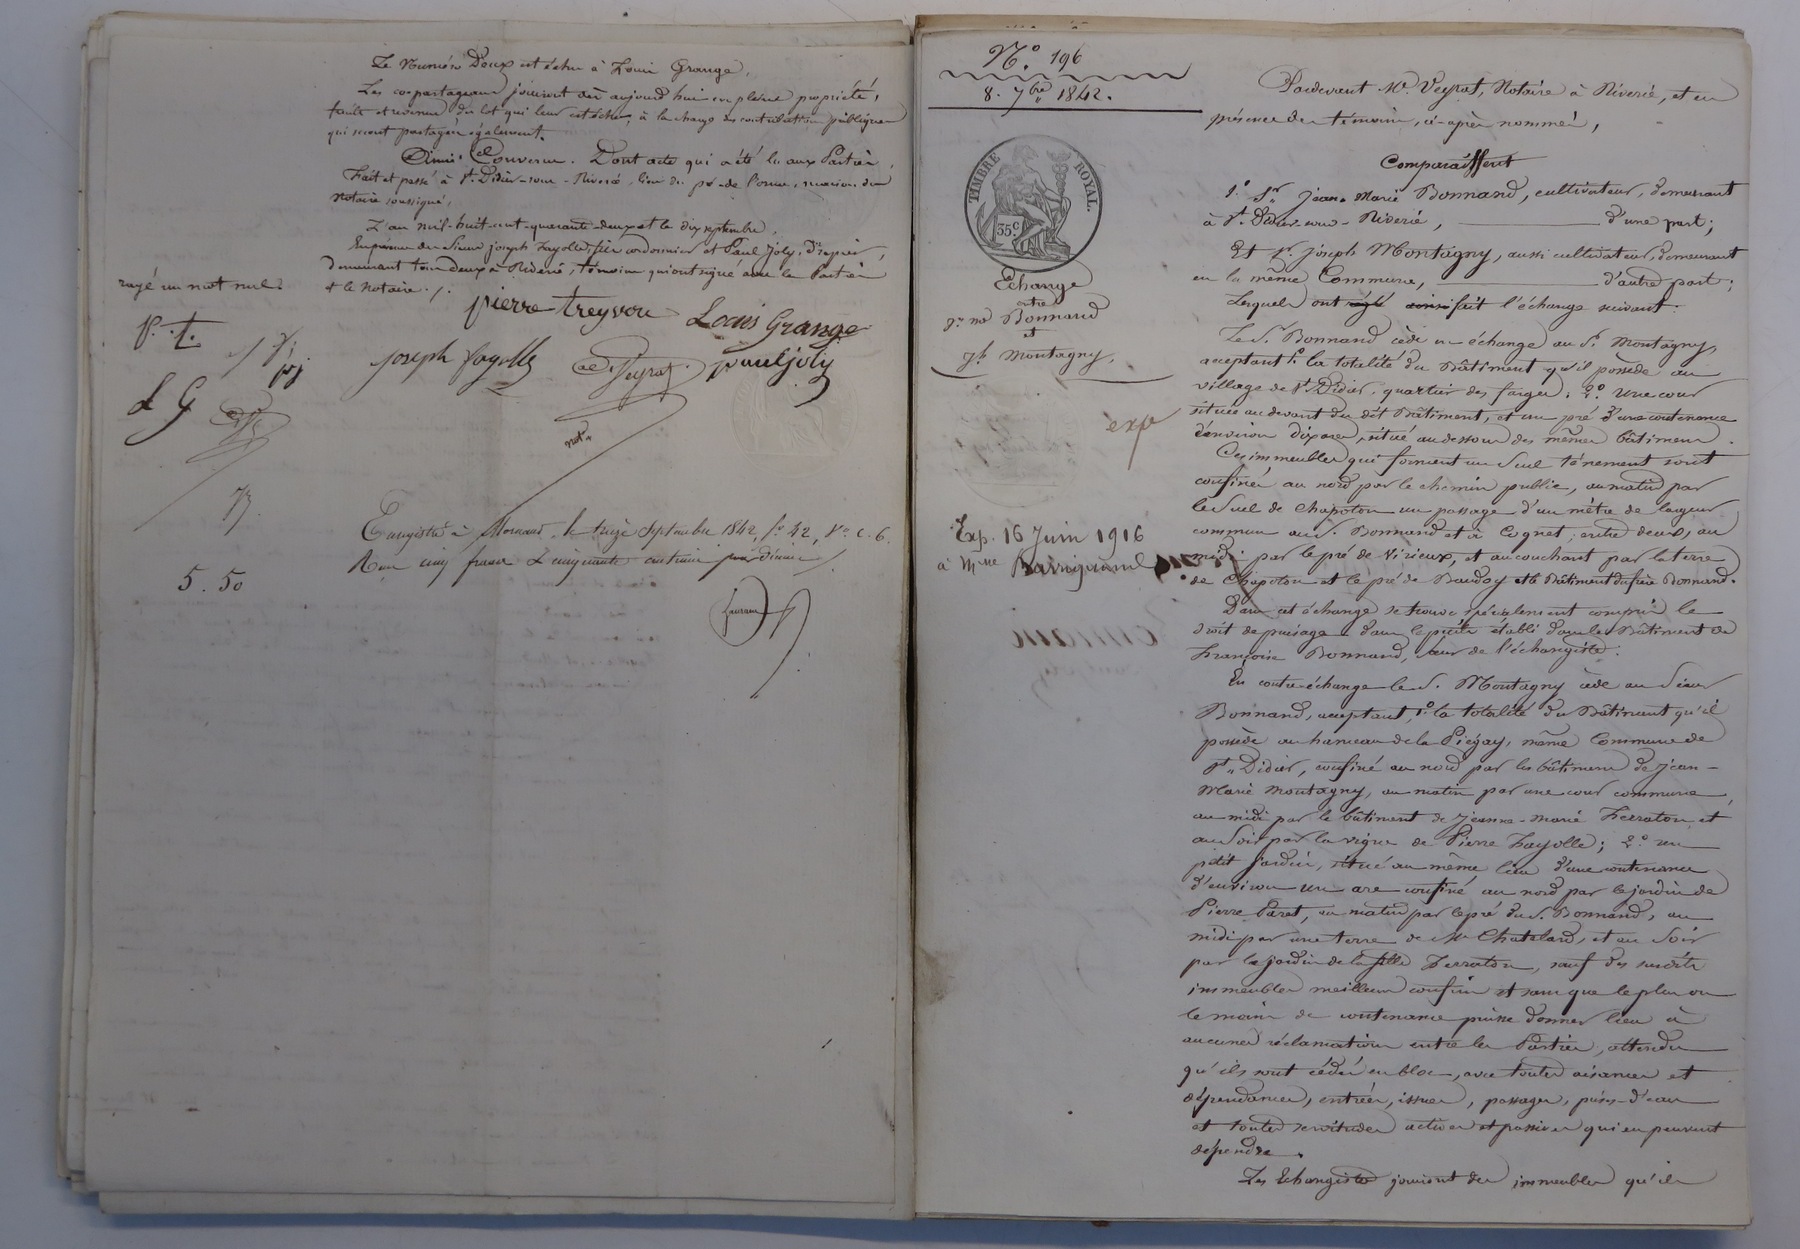 Le Numéro Deux est échu à Louis Grange.
Les copartageans jouiront dès aujourd'hui en pleine propriété,
fruits et revenus du lot qui leur est échu, à la charge des contributions publiques
qui seront partagées également.
Ainsi Convenu. Dont acte qui a été lu aux Parties,
Fait et passé à St. Didier-sous-Riverie, lieu du pré-de l'orme, maison du
Notaire soussigné,
L'an mil-huit-cent-quarante-deux et le dix septembre,
En présence des Sieurs joseph Fayolle, cordonnier et Paul Joly,
demeurant tous deux à Riverie, témoins qui ont signé avec les Parties
et le Notaire ./.
rayé un mot nul.
P. t.
L G
pierre treyvou Louis Grange
joseph fayolle Veyrat paul joly
notre
Enregistré à Mornand, le treize Septembre 1842, fo. 42, Vo. c. 6.
Reçu cinq francs & cinquante centimes décime
5 . 50
No. 196
8. 7bre 1842.
TIMBRE ROYAL.
35c
Echange
entre
Jn. Md Bonnand
et
Jh. Montagny.
exp
Exp. 16 Juin 1916
à Mme
Pardevant Me. Veyrat, Notaire à Riverie, et en
présence des témoins, ci-après nommés,
Comparaissent
1o. Sr. Jean-Marie Bonnand, cultivateur, demeurant
à St. Didier-sous-Riverie, d'une part;
Et Sr. Joseph Montagny, aussi cultivateur, demeurant
en la même Commune, d'autre part;
Lesquels ont réglé ainsi fait l'échange suivant:
Le S. Bonnand cède en échange au S. Montagny,
acceptant 1o. la totalité du Bâtiment qu'il possède au
village de St. Didier, quartier des farges; 2o. Une cour
située au devant du dit Bâtiment, et un pré d'une contenance
d'environ dix ares, situé au dessous des mêmes bâtimens.
Ces immeubles qui forment un seul ténement sont
confinés au nord par le chemin public, au matin par
le Suel de Chapoton un passage d'un mètre de largeur
commun au S. Bonnand et à Cognet, entre deux, au
midi par le pré de Virieux, et au couchant par la terre
de Chapoton et le pré de Bandoy et le Bâtiment du frère Bonnand.
Dans cet échange se trouve spécialement compris le
droit de puisage dans le puits établi dans le Bâtiment de
Françoise Bonnand, sœur de l'échangiste.
En contre-échange le S. Montagny cède au Sieur
Bonnand, acceptant, 1o. la totalité du Bâtiment qu'il
possède au hameau de la Piégay, même Commune de
St. Didier, confiné au nord par les bâtimens de Jean-
Marie Montagny, au matin par une cour commune,
au midi par le bâtiment de Jeanne-Marie Ferraton, et
au Soir par la vigne de Pierre Fayolle; 2o. un
petit jardin, situé au même lieu d'une contenance
d'environ un are confiné au nord par le jardin de
Pierre Paret, au matin par le pré du S. Bonnand, au
midi par une terre de Mr Chatelard, et au Soir
par le jardin de la fille Ferraton, sauf des susdits
immeubles meilleurs confins et sans que le plus ou
le moins de contenance puisse donner lieu à
aucunes réclamations entre les Parties, attendu
qu'ils sont cédés en bloc, avec toutes aisances et
dépendances, entrées, issues, passages, prises-d'eau
et toutes servitudes actives et passives qui en peuvent
dépendre.
Les Echangistes jouiront des immeubles qu'ils